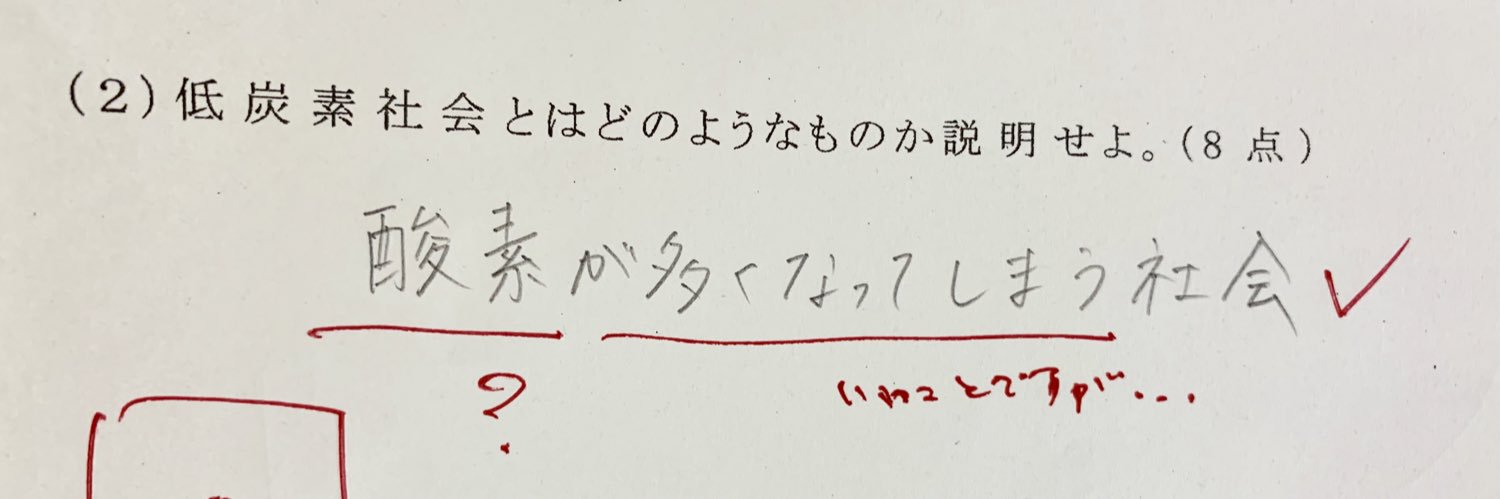 (2)低炭素社会とはどのようなものか説明せよ。(8点)
酸素が多くなってしまう社会
?
いいことですが...